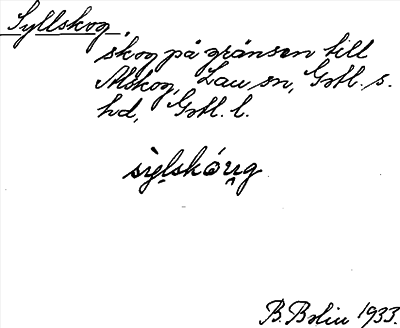 Syllskog,
skog på gränsen till
Alskog, Lau sn, Gotl. s.
hd, Gotl. l.
sỳlskóu̯g
B. Bolin 1933.